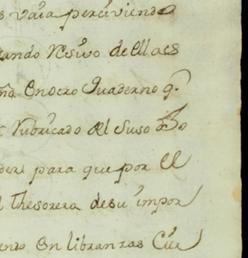 vaia perciviendo
tando Resivo de ellas
en otro quaderno q.
rubricado del suso
para que por el
Thesorera de su impor
en libranzas